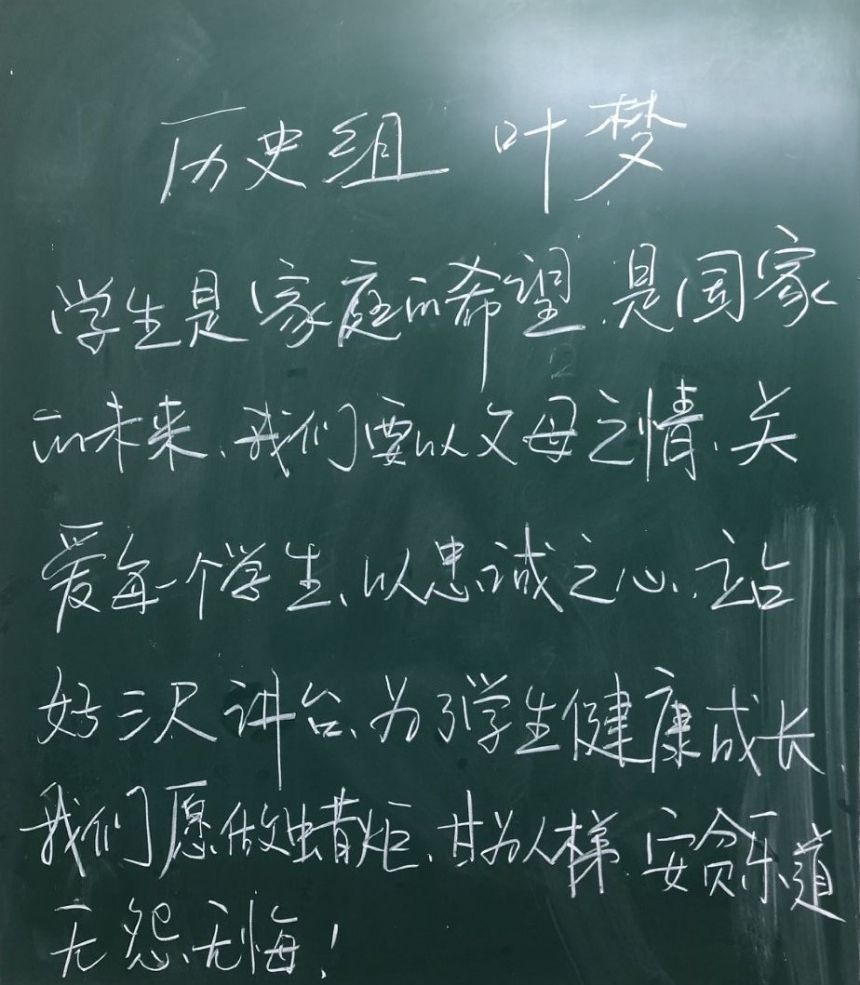 历史组 叶梦
学生是家庭的希望、是国家
的未来、我们要以父母之情、关
爱每一个学生、以忠诚之心、站
好三尺讲台、为了学生健康成长、
我们愿做蜡炬、甘为人梯、安贫乐道
无怨、无悔!